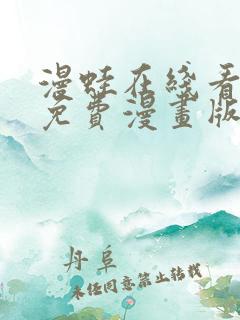 漫蛙在线看
免費漫畫版
丹阜
未经同意禁止转载